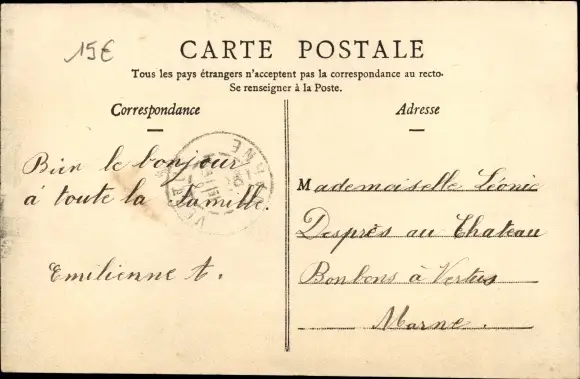 15€
CARTE POSTALE
Tous les pays étrangers n'acceptent pas la correspondance au recto.
Se renseigner à la Poste.
Correspondance
Adresse
Bien le bonjour
à toute la famille.
Emilienne t.
Mademoiselle Léonie
Desprès au Chateau
Bonbons à Vertus
Marne.
MARNE